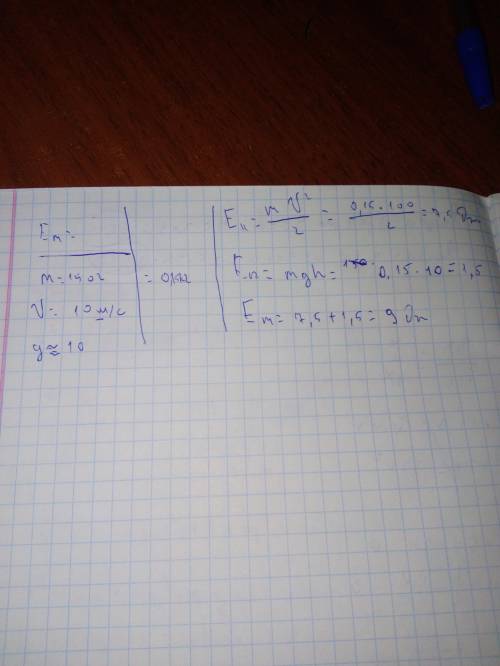 Eм =
m = 150г = 0,15кг
V = 10 м/с
g ≈ 10
Eк = mV²/2 = 0,15·100/2 = 7,5 Дж
Eп = mgh = 0,15·10 = 1,5
Eм = 7,5 + 1,5 = 9 Дж